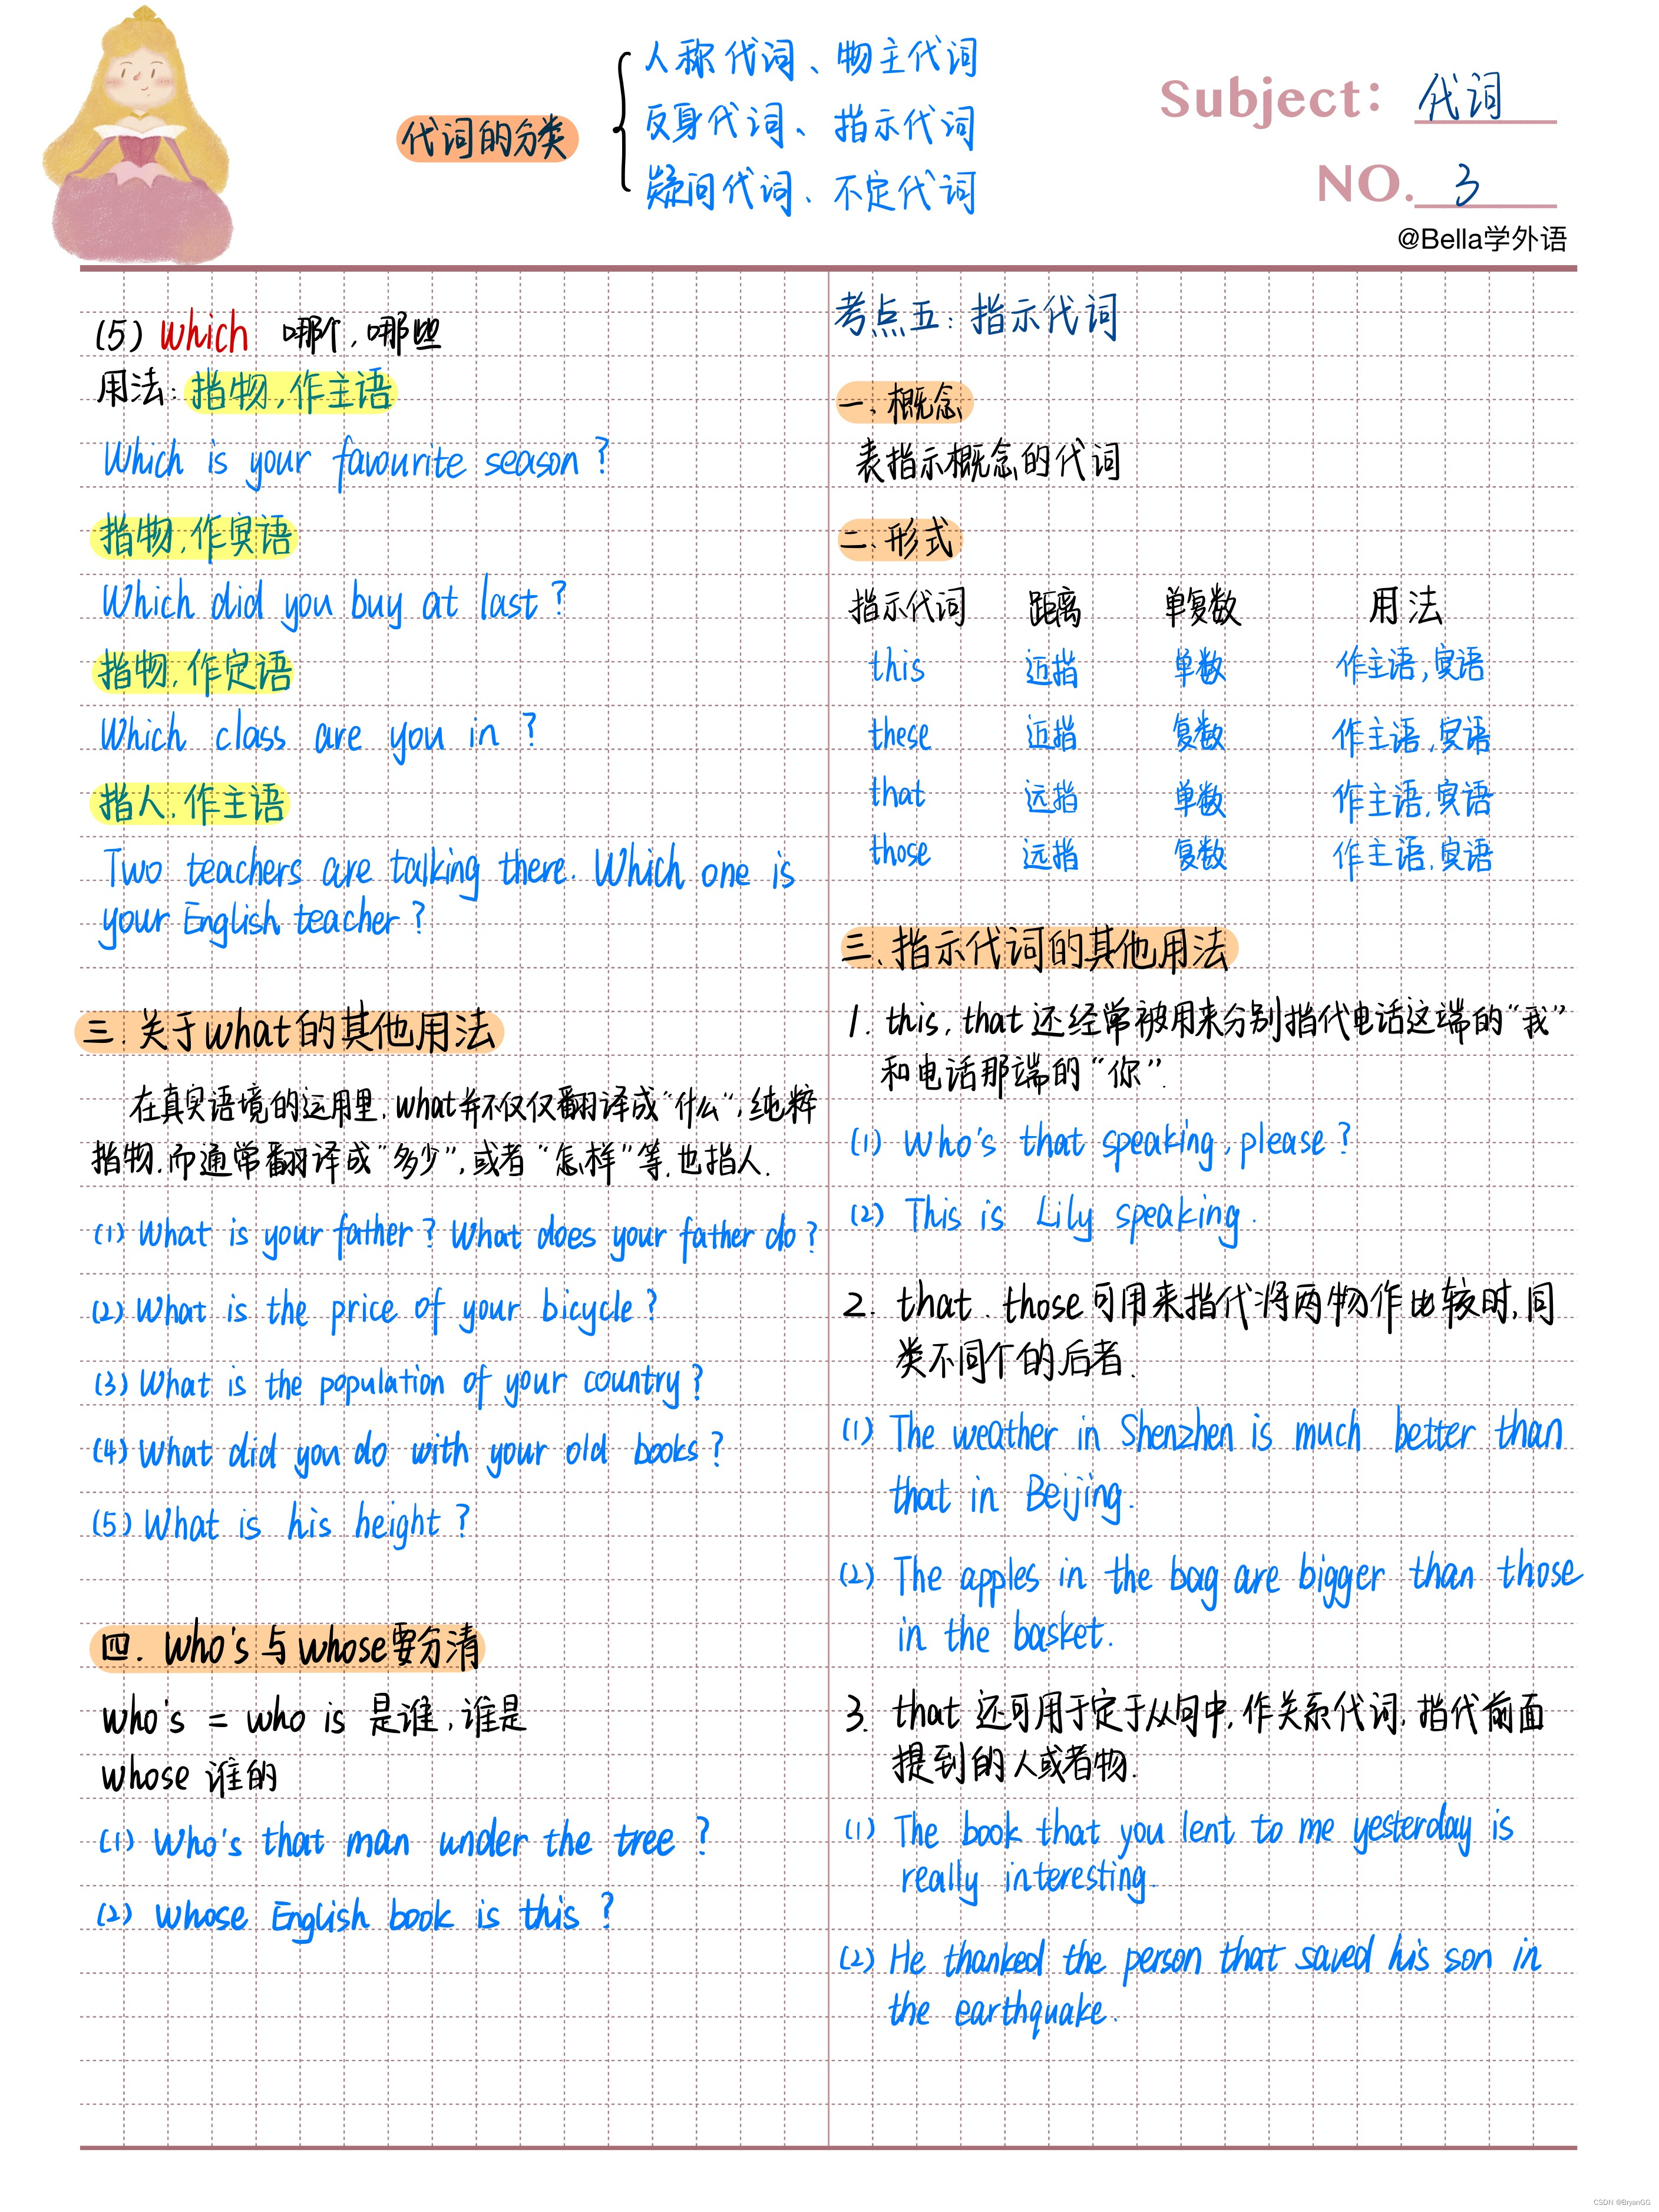 代词的分类
人称代词、物主代词
反身代词、指示代词
疑问代词、不定代词
Subject: 代词
NO. 3
@Bella学外语
(5) which 哪个,哪些
用法: 指物,作主语
Which is your favourite season?
指物,作宾语
Which did you buy at last?
指物,作定语
Which class are you in?
指人,作主语
Two teachers are talking there. Which one is
your English teacher?
三. 关于what的其他用法
在真实语境的运用里,what并不仅仅翻译成“什么”,纯粹
指物,而通常翻译成“多少”,或者“怎样”等,也指人.
(1) What is your father? What does your father do?
(2) What is the price of your bicycle?
(3) What is the population of your country?
(4) What did you do with your old books?
(5) What is his height?
四. who's与whose要分清
who's = who is 是谁,谁是
whose 谁的
(1) Who's that man under the tree?
(2) Whose English book is this?
考点五: 指示代词
一、概念
表指示概念的代词
二、形式
指示代词 距离 单复数 用法
this 近指 单数 作主语,宾语
these 近指 复数 作主语,宾语
that 远指 单数 作主语,宾语
those 远指 复数 作主语,宾语
三、指示代词的其他用法
1. this, that 还经常被用来分别指代电话这端的“我”
和电话那端的“你”.
(1) Who's that speaking, please?
(2) This is Lily speaking.
2. that、those可用来指代将两物作比较时,同
类不同个的后者.
(1) The weather in Shenzhen is much better than
that in Beijing.
(2) The apples in the bag are bigger than those
in the basket.
3. that 还可用于定于从句中,作关系代词,指代前面
提到的人或者物.
(1) The book that you lent to me yesterday is
really interesting.
(2) He thanked the person that saved his son in
the earthquake.
CSDN @BryanGG